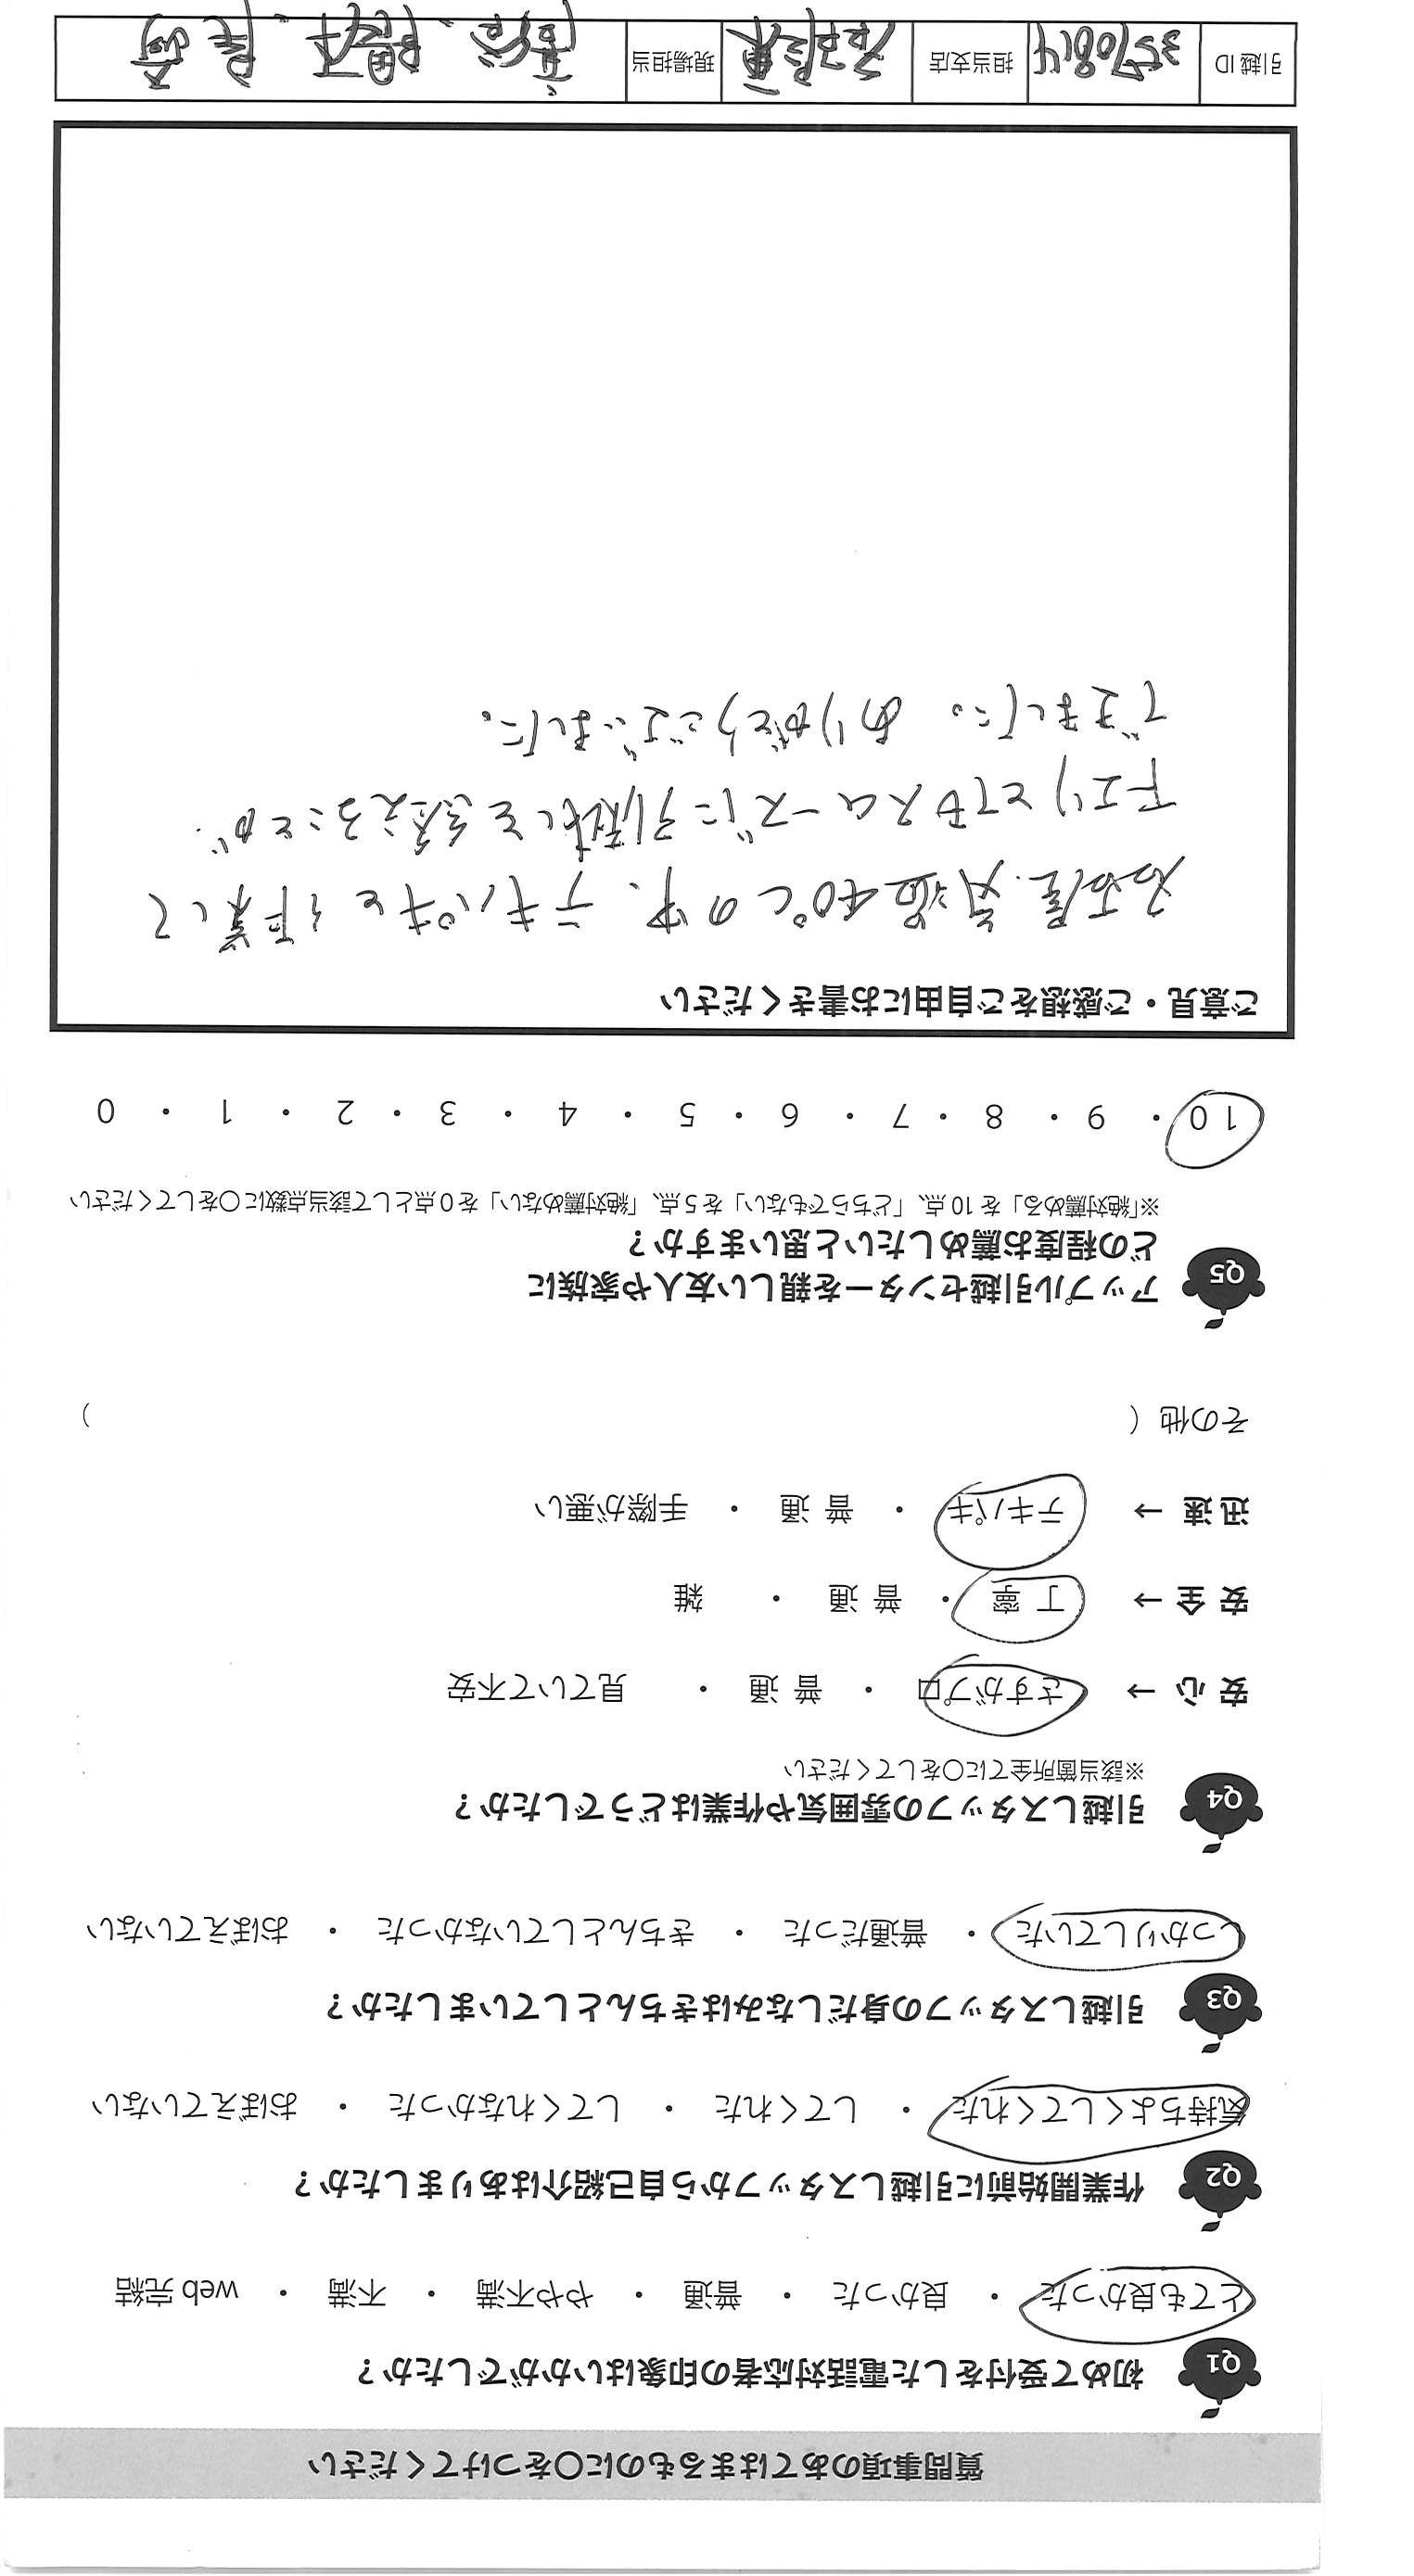 質問事項のあてはまるものに〇をつけてください
Q1 初めて受付をした電話対応者の印象はいかがでしたか？
とても良かった ・ 良かった ・ 普通 ・ やや不満 ・ 不満 ・ web 完結
Q2 作業開始前に引越しスタッフから自己紹介はありましたか？
気持ちよくしてくれた ・ してくれた ・ してくれなかった ・ おぼえていない
Q3 引越しスタッフの身だしなみはきちんとしていましたか？
しっかりしていた ・ 普通だった ・ きちんとしていなかった ・ おぼえていない
Q4 引越しスタッフの雰囲気や作業はどうでしたか？
※該当箇所全てに〇をしてください
安 心 → さすがプロ ・ 普 通 ・ 見ていて不安
安 全 → 丁 寧 ・ 普 通 ・ 雑
迅 速 → テキパキ ・ 普 通 ・ 手際が悪い
その他（ ）
Q5 アップル引越センターを親しい友人や家族に
どの程度お薦めしたいと思いますか？
※「絶対薦める」を 10 点、「どちらでもない」を 5 点、「絶対薦めない」を 0 点として該当点数に〇をしてください
10 ・ 9 ・ 8 ・ 7 ・ 6 ・ 5 ・ 4 ・ 3 ・ 2 ・ 1 ・ 0
ご意見・ご感想をご自由にお書きください
名古屋 気温40℃の中、テキパキと作業して
下エリとてもスムーズに引越しを終えることが
できました。 ありがとうございました。
引越 ID 3570814 担当支店 現場担当